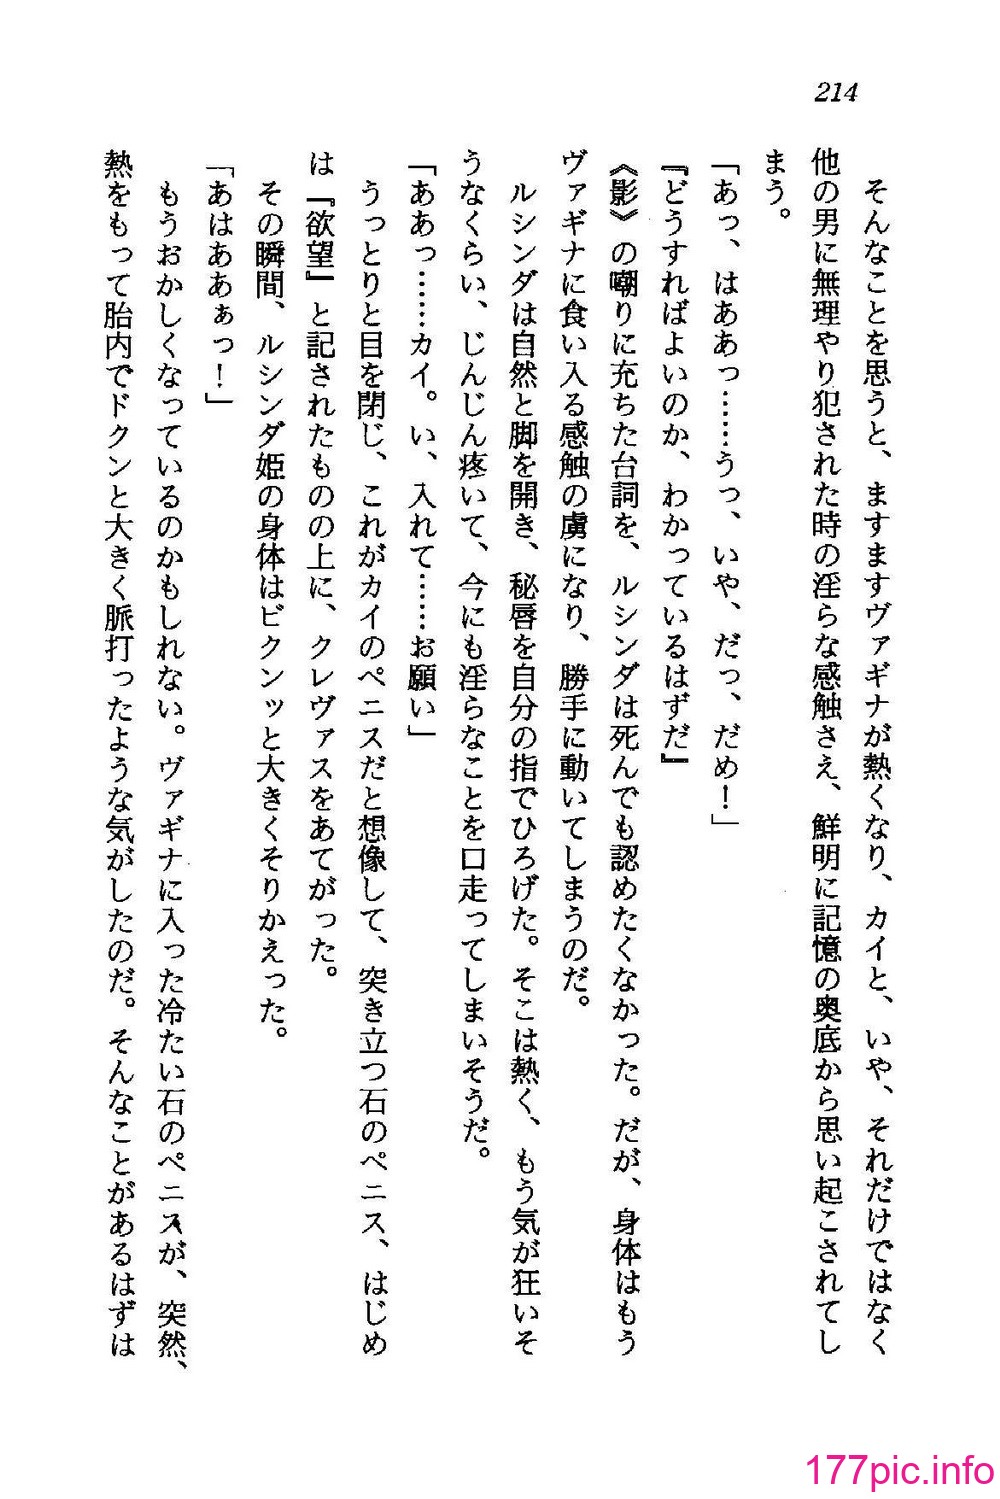 214
そんなことを思うと、ますますヴァギナが熱くなり、カイと、いや、それだけではなく
他の男に無理やり犯された時の淫らな感触さえ、鮮明に記憶の奥底から思い起こされてし
まう。
「あっ、はああっ……うっ、いや、だっ、だめ！」
『どうすればよいのか、わかっているはずだ』
《影》の嘲りに充ちた台詞を、ルシンダは死んでも認めたくなかった。だが、身体はもう
ヴァギナに食い入る感触の虜になり、勝手に動いてしまうのだ。
ルシンダは自然と脚を開き、秘唇を自分の指でひろげた。そこは熱く、もう気が狂いそ
うなくらい、じんじん疼いて、今にも淫らなことを口走ってしまいそうだ。
「ああっ……カイ。い、入れて……お願い」
うっとりと目を閉じ、これがカイのペニスだと想像して、突き立つ石のペニス、はじめ
は『欲望』と記されたものの上に、クレヴァスをあてがった。
その瞬間、ルシンダ姫の身体はビクンッと大きくそりかえった。
「あはああぁっ！」
もうおかしくなっているのかもしれない。ヴァギナに入った冷たい石のペニスが、突然、
熱をもって胎内でドクンと大きく脈打ったような気がしたのだ。そんなことがあるはずは
177pic.info